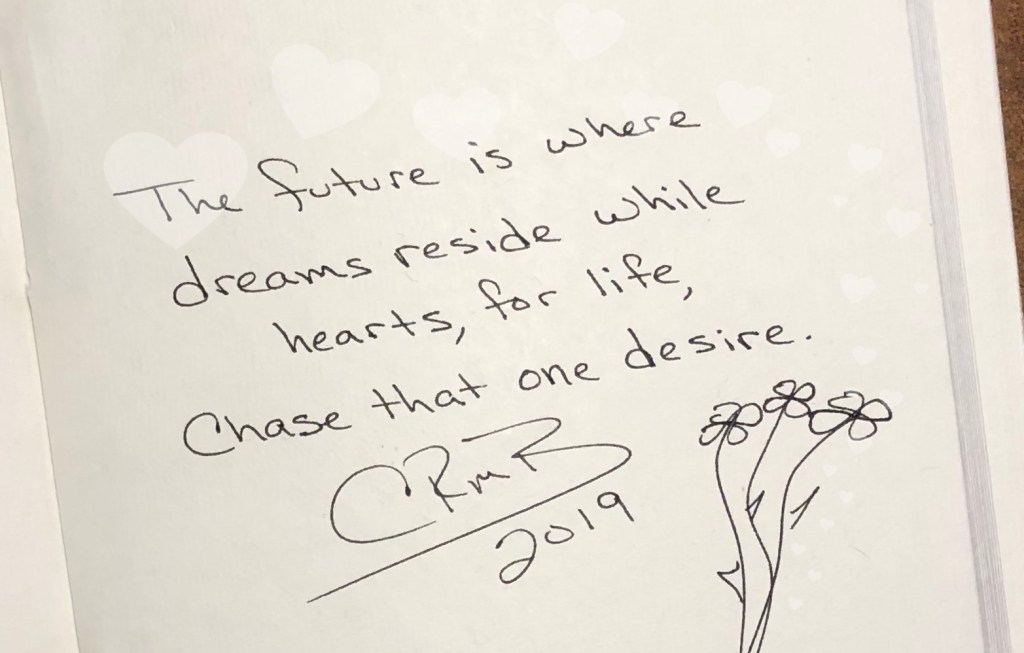 The future is where
dreams reside while
hearts, for life,
Chase that one desire.
CRmB
2019